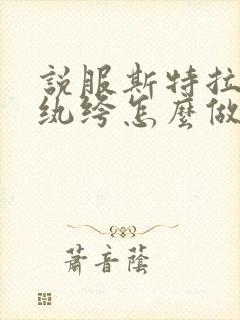 説服斯特拉
纨绔怎麼做
蕭音蔭